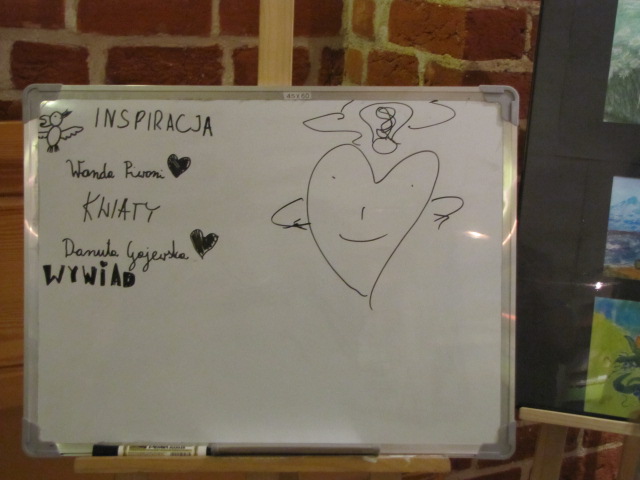 45x60
INSPIRACJA
Wanda
KWIATY
Danuta Gajewska
WYWIAD